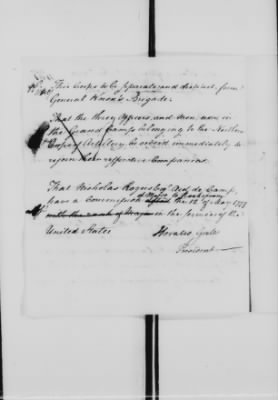 This Corps to be separate and distinct from
General Knox's Brigade.
That the three Officers, and Men, now in
the Grand Camp belonging to the Northern
Corps of Artillery, be ordered immediately to
rejoin their respective Companies.
That Nicholas Rogers Esqr. Aid de Camp,
of Major to
have a Commission dated the 12 of May 1777
with the rank of Major in the service of the
United States
Horatio Gates
President